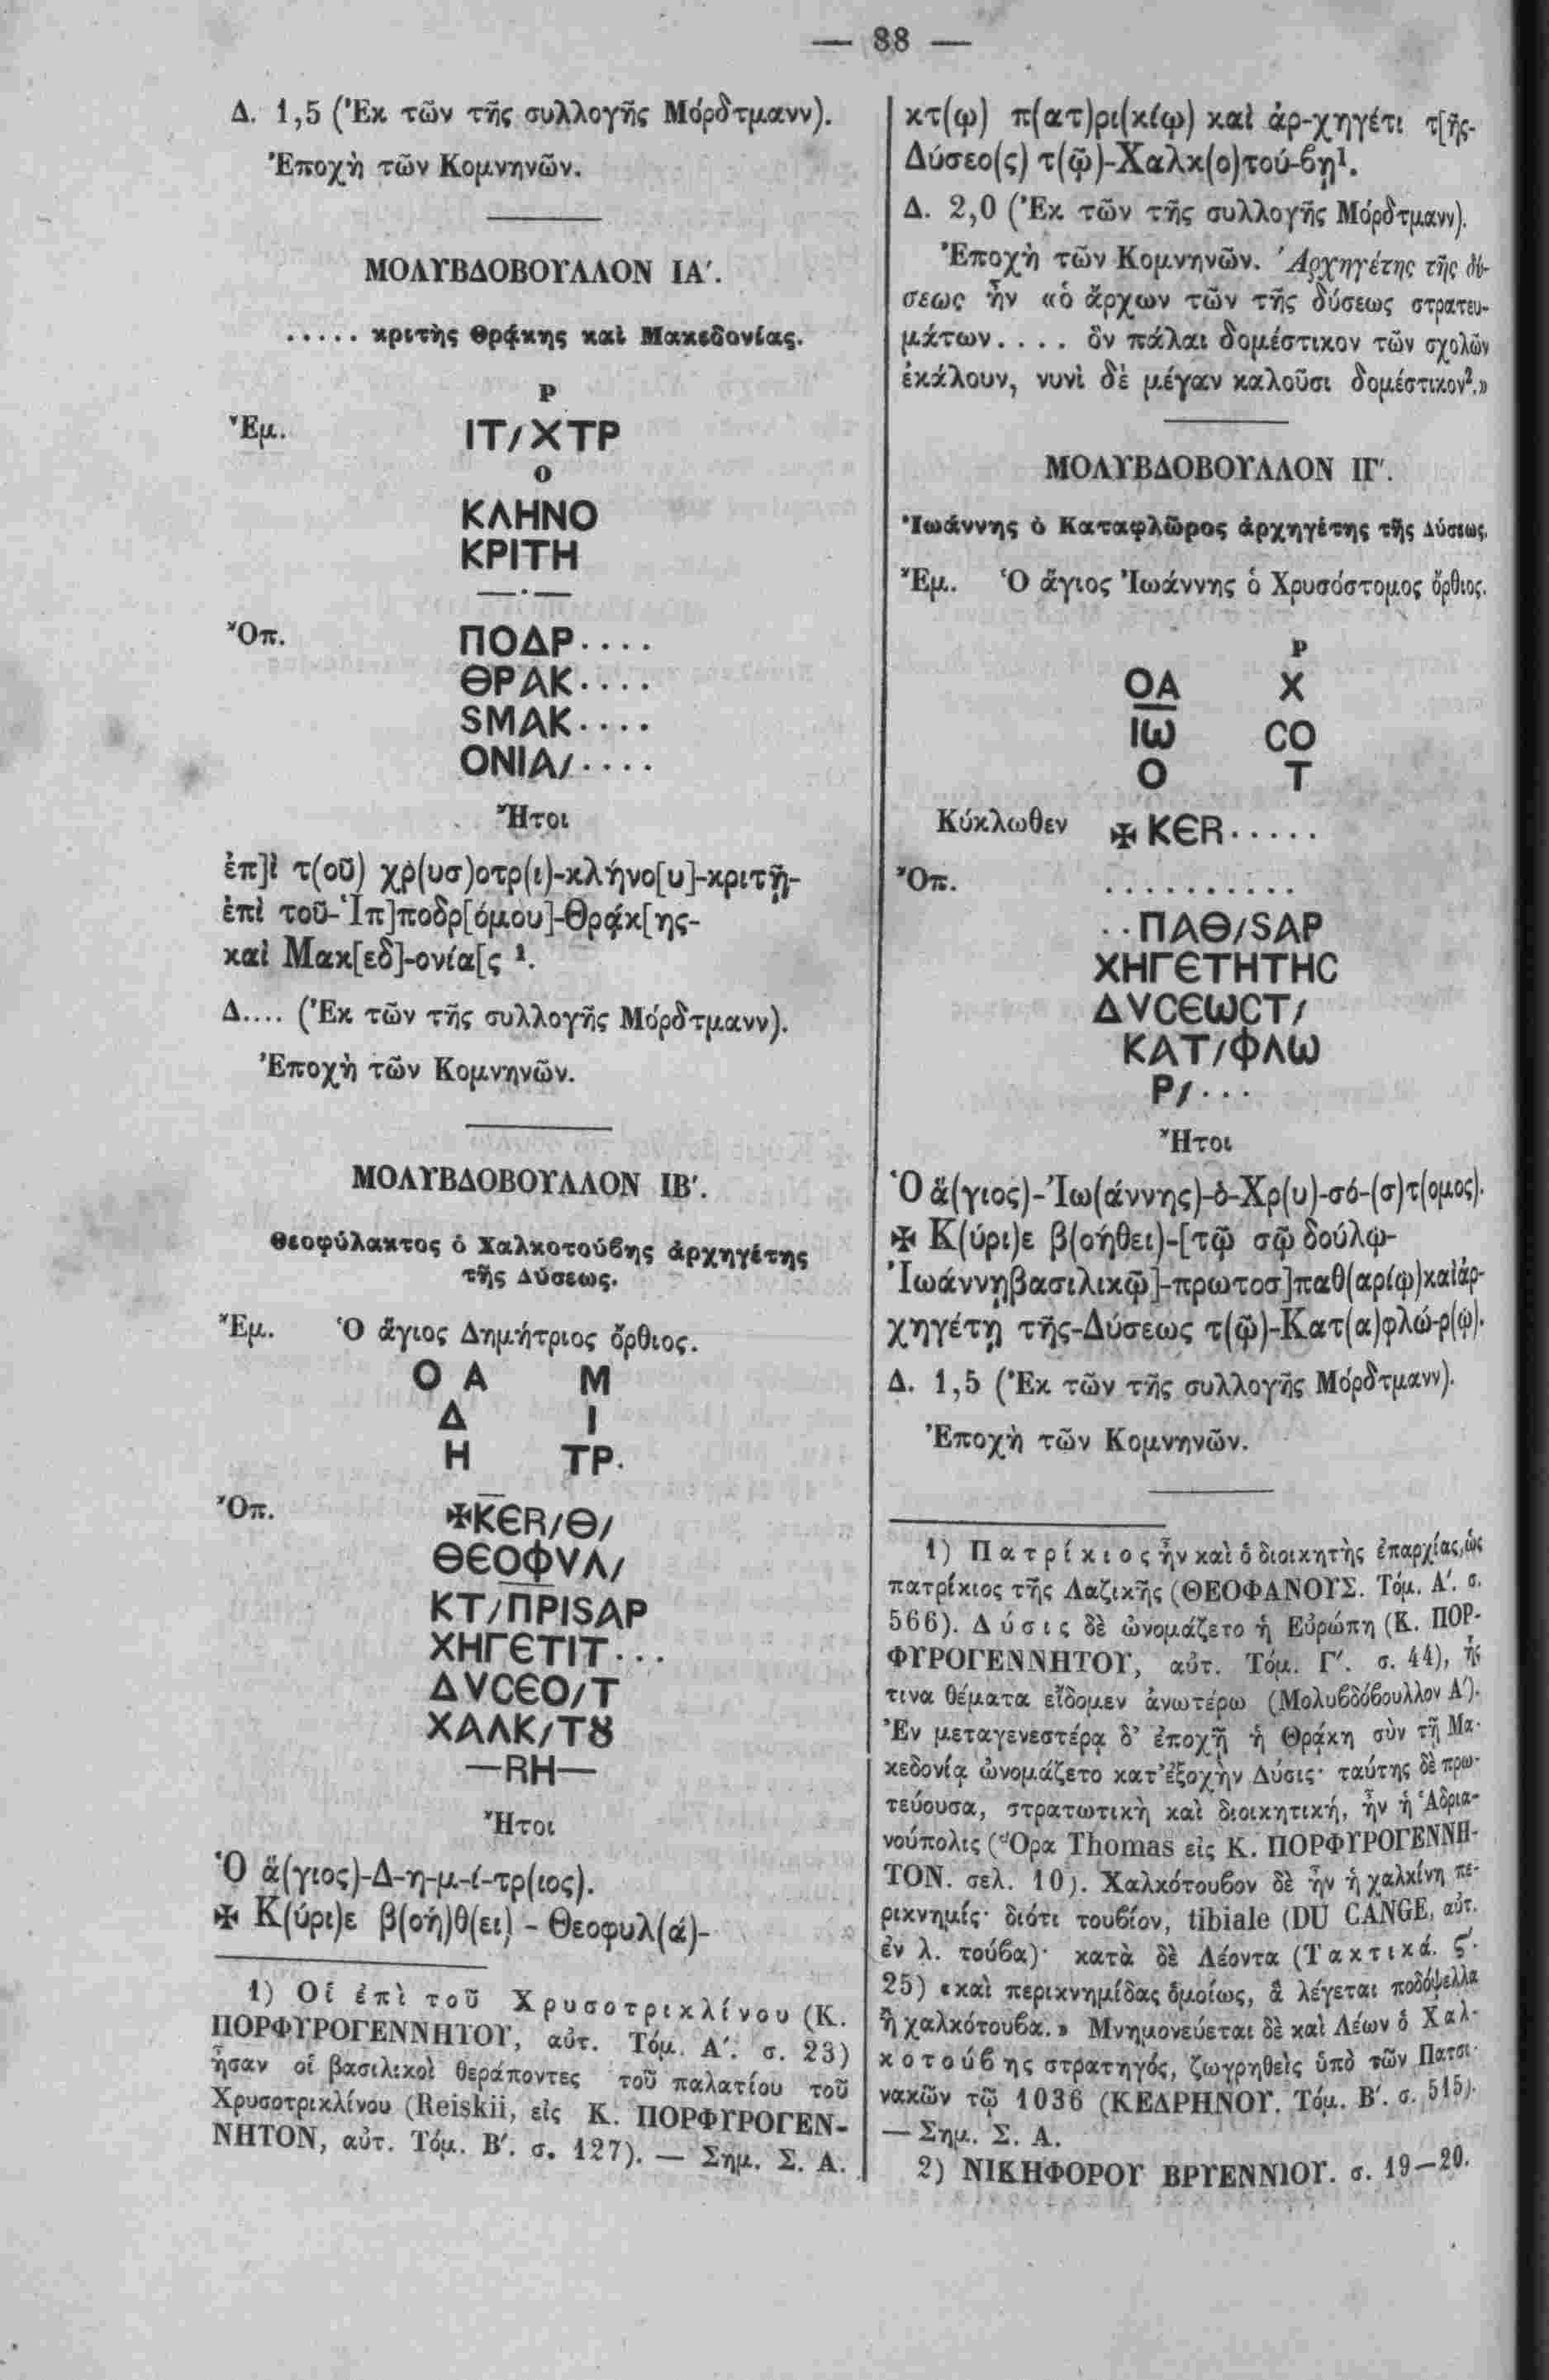 — 88 —
Δ. 1,5 (Ἐκ τῶν τῆς συλλογῆς Μόρδτμανν).
Ἐποχὴ τῶν Κομνηνῶν.
ΜΟΛΥΒΔΟΒΟΥΛΛΟΝ ΙΑ′.
..... κριτὴς Θρᾴκης καὶ Μακεδονίας.
Ρ
Ἔμ. ΙΤ/ΧΤΡ
Ο
ΚΛΗΝΟ
ΚΡΙΤΗ
—·—
Ὄπ. ΠΟΔΡ····
ΘΡΑΚ····
SΜΑΚ····
ΟΝΙΑ/····
Ἤτοι
ἐπ]ὶ τ(οῦ) χρ(υσ)οτρ(ι)-κλήνο[υ]-κριτῇ-
ἐπὶ τοῦ-Ἱπ]ποδρ[όμου]-Θρᾴκ[ης-
καὶ Μακ[εδ]-ονία[ς ¹.
Δ.... (Ἐκ τῶν τῆς συλλογῆς Μόρδτμανν).
Ἐποχὴ τῶν Κομνηνῶν.
ΜΟΛΥΒΔΟΒΟΥΛΛΟΝ ΙΒ′.
Θεοφύλακτος ὁ Χαλκοτούβης ἀρχηγέτης
τῆς Δύσεως.
Ἔμ. Ὁ ἅγιος Δημήτριος ὄρθιος.
Ο Α Μ
Δ Ι
Η ΤΡ·
Ὄπ. ✠ΚЄR/Θ/
ΘЄΟΦVΛ/
ΚΤ/ΠΡΙSΑΡ
ΧΗΓЄΤΙΤ···
ΔVCЄΟ/Τ
ΧΑΛΚ/Τȣ
—RΗ—
Ἤτοι
Ὁ ἅ(γιος)-Δ-η-μ-ί-τρ(ιος).
✠ Κ(ύρι)ε β(οή)θ(ει) - Θεοφυλ(ά)-
1) Οἱ ἐπὶ τοῦ Χρυσοτρικλίνου (Κ.
ΠΟΡΦΥΡΟΓΕΝΝΗΤΟΥ, αὐτ. Τόμ. Α′. σ. 23)
ἦσαν οἱ βασιλικοὶ θεράποντες τοῦ παλατίου τοῦ
Χρυσοτρικλίνου (Reiskii, εἰς Κ. ΠΟΡΦΥΡΟΓΕΝ-
ΝΗΤΟΝ, αὐτ. Τόμ. Β′. σ. 127). — Σημ. Σ. Α.
κτ(ῳ) π(ατ)ρι(κίῳ) καὶ ἀρ-χηγέτι τ[ῆς-
Δύσεο(ς) τ(ῷ)-Χαλκ(ο)τού-βῃ¹.
Δ. 2,0 (Ἐκ τῶν τῆς συλλογῆς Μόρδτμανν).
Ἐποχὴ τῶν Κομνηνῶν. Ἀρχηγέτης τῆς δύ-
σεως ἦν «ὁ ἄρχων τῶν τῆς δύσεως στρατευ-
μάτων.... ὃν πάλαι δομέστικον τῶν σχολῶν
ἐκάλουν, νυνὶ δὲ μέγαν καλοῦσι δομέστικον².»
ΜΟΛΥΒΔΟΒΟΥΛΛΟΝ ΙΓ′.
Ἰωάννης ὁ Καταφλῶρος ἀρχηγέτης τῆς Δύσεως.
Ἔμ. Ὁ ἅγιος Ἰωάννης ὁ Χρυσόστομος ὄρθιος.
Ρ
ΟΑ Χ
ΙѠ CΟ
Ο Τ
Κύκλωθεν ✠ ΚЄR·····
Ὄπ. ··········
··ΠΑΘ/SΑΡ
ΧΗΓЄΤΗΤΗC
ΔVCЄѠCΤ/
ΚΑΤ/ΦΛѠ
Ρ/···
Ἤτοι
Ὁ ἅ(γιος)-Ἰω(άννης)-ὁ-Χρ(υ)-σό-(σ)τ(ομος).
✠ Κ(ύρι)ε β(οήθει)-[τῷ σῷ δούλῳ-
Ἰωάννῃβασιλικῷ]-πρωτοσ]παθ(αρίῳ)καὶἀρ-
χηγέτῃ τῆς-Δύσεως τ(ῷ)-Κατ(α)φλώ-ρ(ῳ).
Δ. 1,5 (Ἐκ τῶν τῆς συλλογῆς Μόρδτμανν).
Ἐποχὴ τῶν Κομνηνῶν.
1) Πατρίκιος ἦν καὶ ὁ διοικητὴς ἐπαρχίας, ὡς
πατρίκιος τῆς Λαζικῆς (ΘΕΟΦΑΝΟΥΣ. Τόμ. Α′. σ.
566). Δύσις δὲ ὠνομάζετο ἡ Εὐρώπη (Κ. ΠΟΡ-
ΦΥΡΟΓΕΝΝΗΤΟΥ, αὐτ. Τόμ. Γ′. σ. 44), ἧς
τινα θέματα εἴδομεν ἀνωτέρω (Μολυβδόβουλλον Α′).
Ἐν μεταγενεστέρᾳ δ' ἐποχῇ ἡ Θρᾴκη σὺν τῇ Μα-
κεδονίᾳ ὠνομάζετο κατ' ἐξοχὴν Δύσις· ταύτης δὲ πρω-
τεύουσα, στρατωτικὴ καὶ διοικητική, ἦν ἡ Ἀδρια-
νούπολις (Ὅρα Thomas εἰς Κ. ΠΟΡΦΥΡΟΓΕΝΝΗ-
ΤΟΝ. σελ. 10). Χαλκότουβον δὲ ἦν ἡ χαλκίνη πε-
ρικνημίς· διότι τουβίον, tibiale (DU CANGE, αὐτ.
ἐν λ. τούβα)· κατὰ δὲ Λέοντα (Τακτικά. ϛ′.
25) «καὶ περικνημίδας ὁμοίως, ἃ λέγεται ποδόψελλα
ἢ χαλκότουβα.» Μνημονεύεται δὲ καὶ Λέων ὁ Χαλ-
κοτούβης στρατηγός, ζωγρηθεὶς ὑπὸ τῶν Πατσι-
νακῶν τῷ 1036 (ΚΕΔΡΗΝΟΥ. Τόμ. Β′. σ. 515).
— Σημ. Σ. Α.
2) ΝΙΚΗΦΟΡΟΥ ΒΡΥΕΝΝΙΟΥ. σ. 19—20.